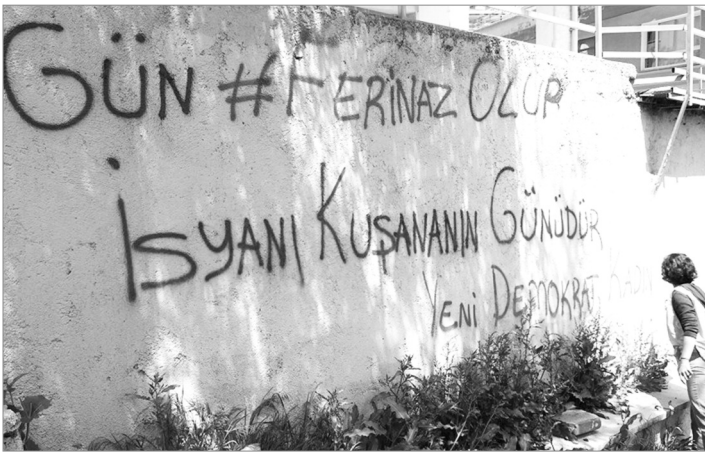 Gün #Ferinaz Olup
İsyanı Kuşananın Günüdür
Yeni Demokrat Kadın